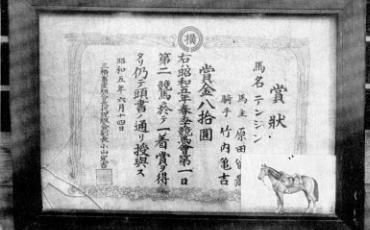 横
賞狀
馬名 テンジン
馬主 原田
騎手 竹内亀吉
賞金八拾圓
右ハ昭和五年春季競馬會第一日
第二競馬ニ於テ一着ノ賞ヲ得
タリ仍テ頭書ノ通リ授與ス
昭和五年六月十四日